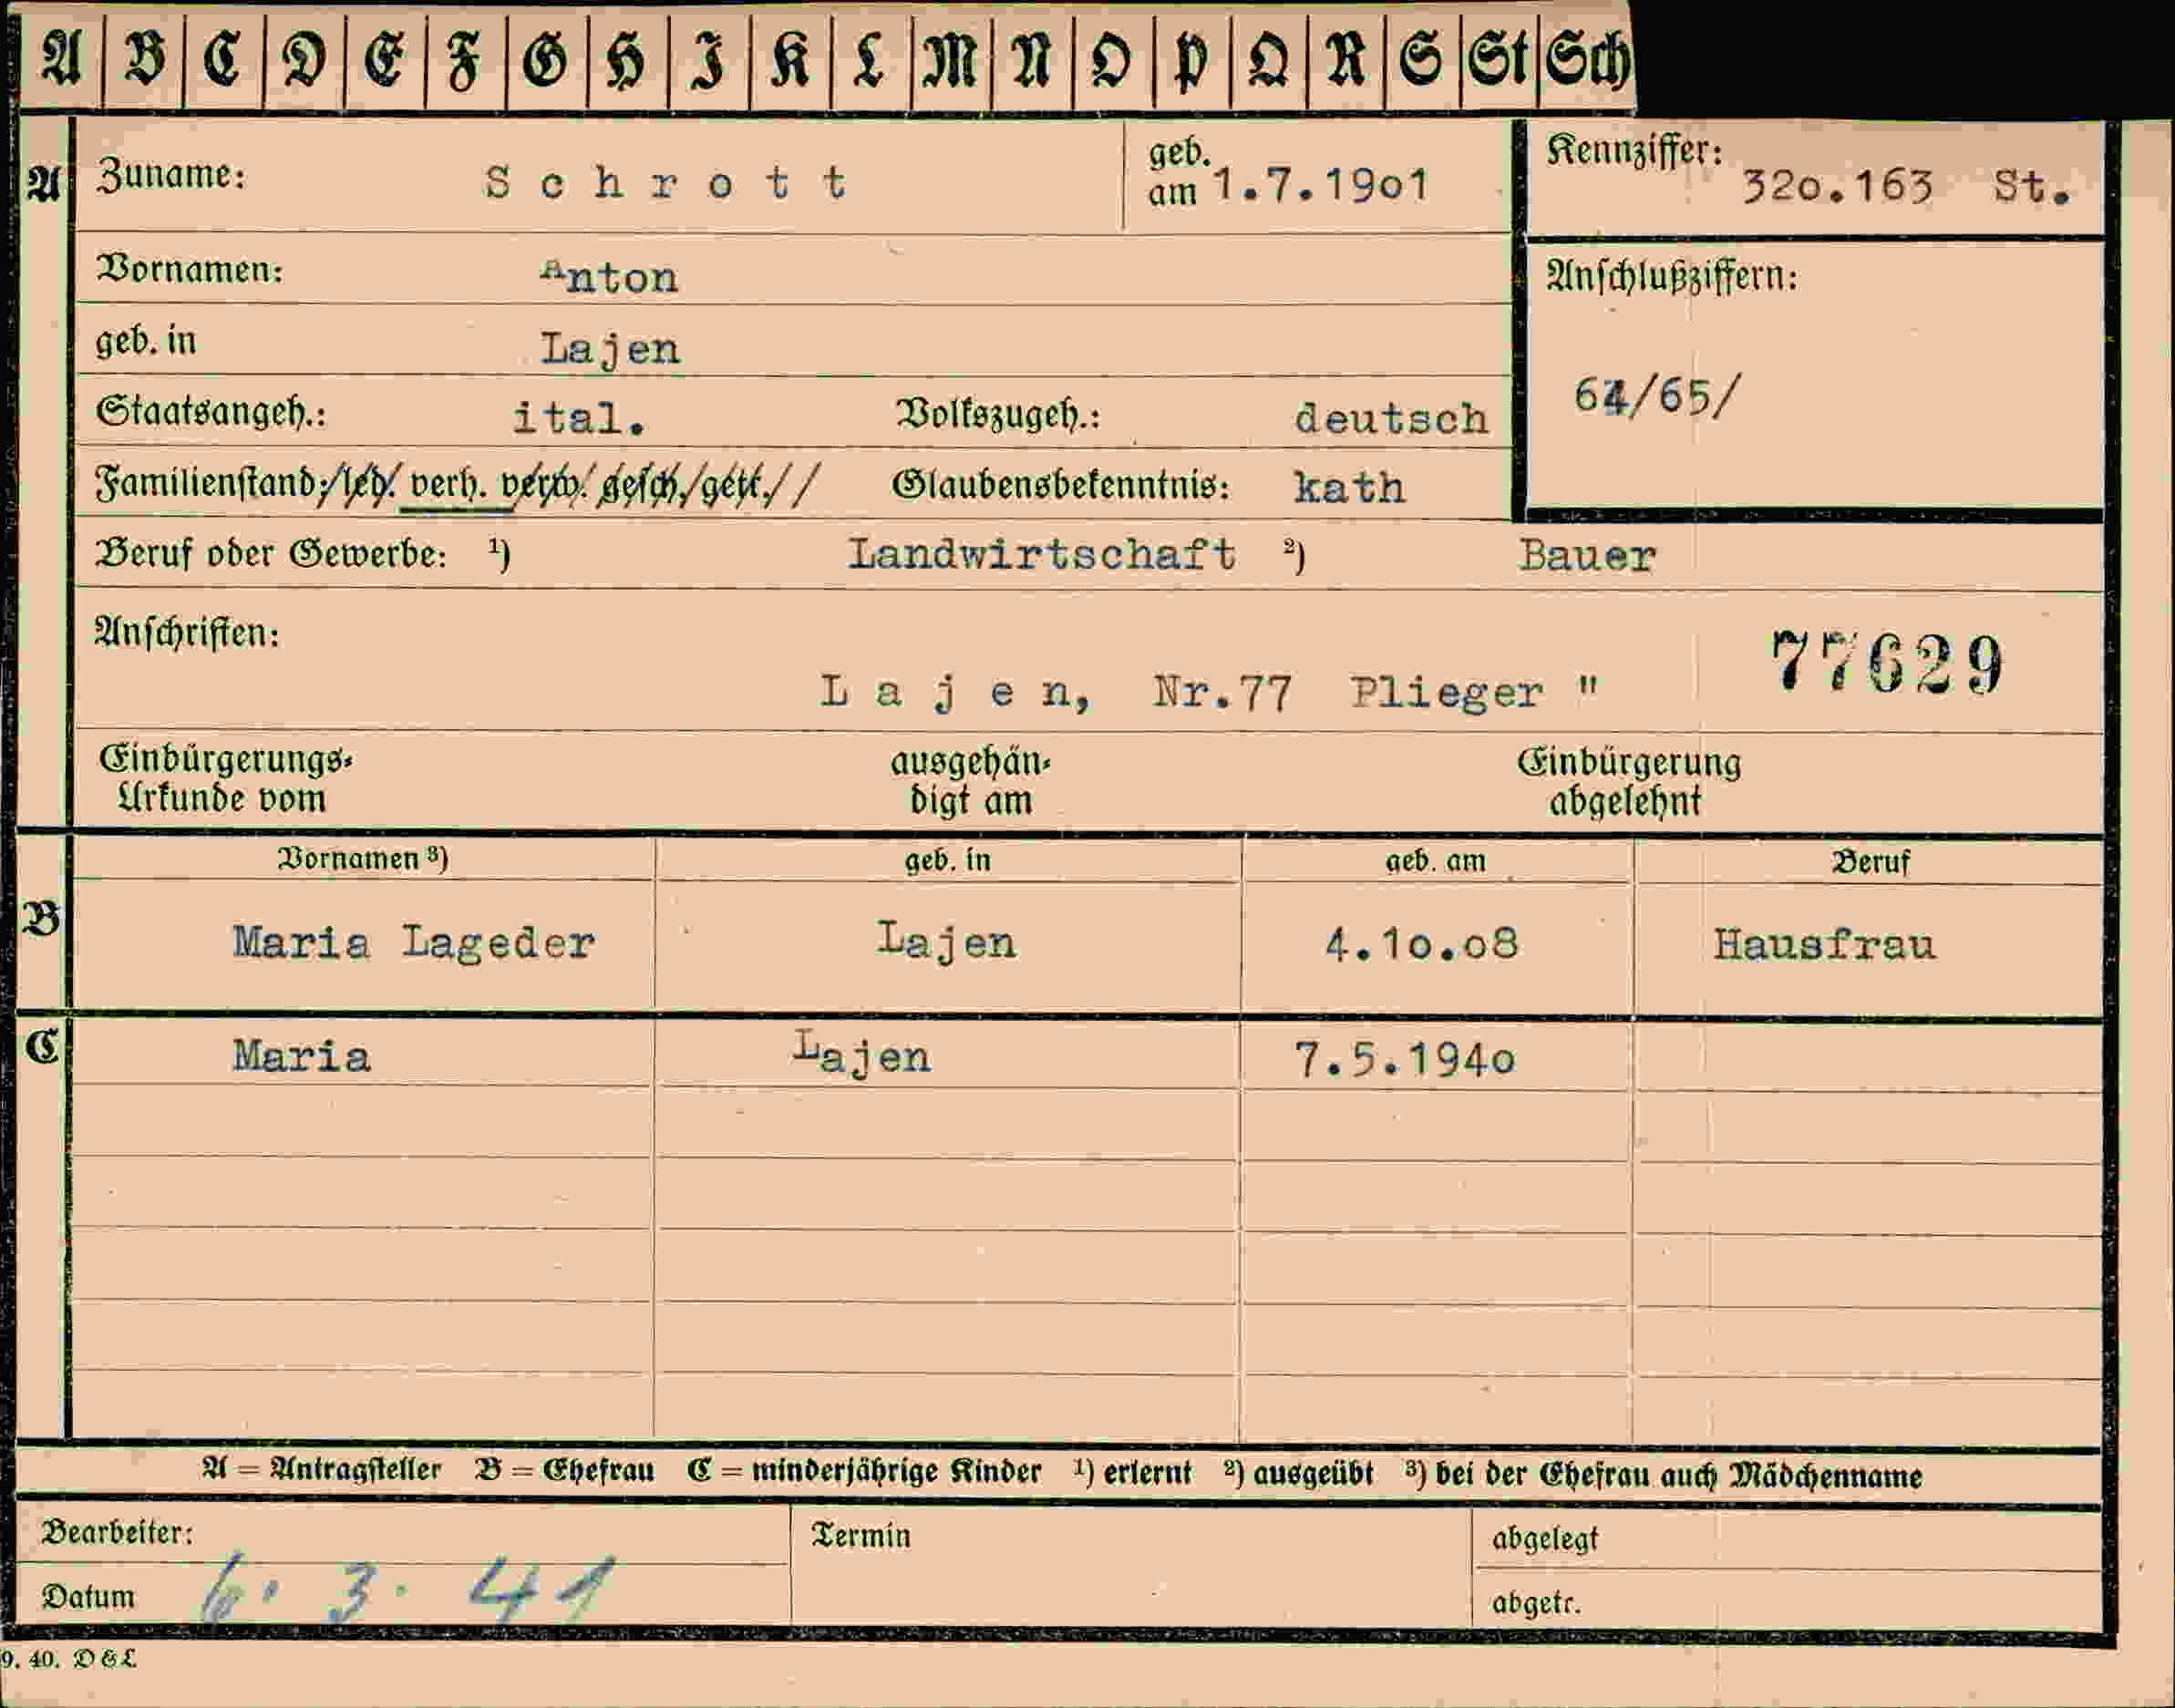 A B C D E F G H I K L M N O P Q R S St Sch
A Zuname: Schrott geb. am 1.7.19o1 Kennziffer: 32o.163 St.
Vornamen: Anton Anschlußziffern:
geb. in Lajen
64/65/
Staatsangeh.: ital. Volkszugeh.: deutsch
Familienstand: led. verh. verw. gesch. getr. Glaubensbekenntnis: kath
Beruf oder Gewerbe: ¹) Landwirtschaft ²) Bauer
Anschriften:
77629
Lajen, Nr.77 Plieger "
Einbürgerungs- ausgehän- Einbürgerung
Urkunde vom digt am abgelehnt
Vornamen ³) geb. in geb. am Beruf
B Maria Lageder Lajen 4.1o.o8 Hausfrau
C Maria Lajen 7.5.194o
A = Antragsteller B = Ehefrau C = minderjährige Kinder ¹) erlernt ²) ausgeübt ³) bei der Ehefrau auch Mädchenname
Bearbeiter: Termin abgelegt
Datum 6. 3. 41 abgetr.
9. 40. D & L